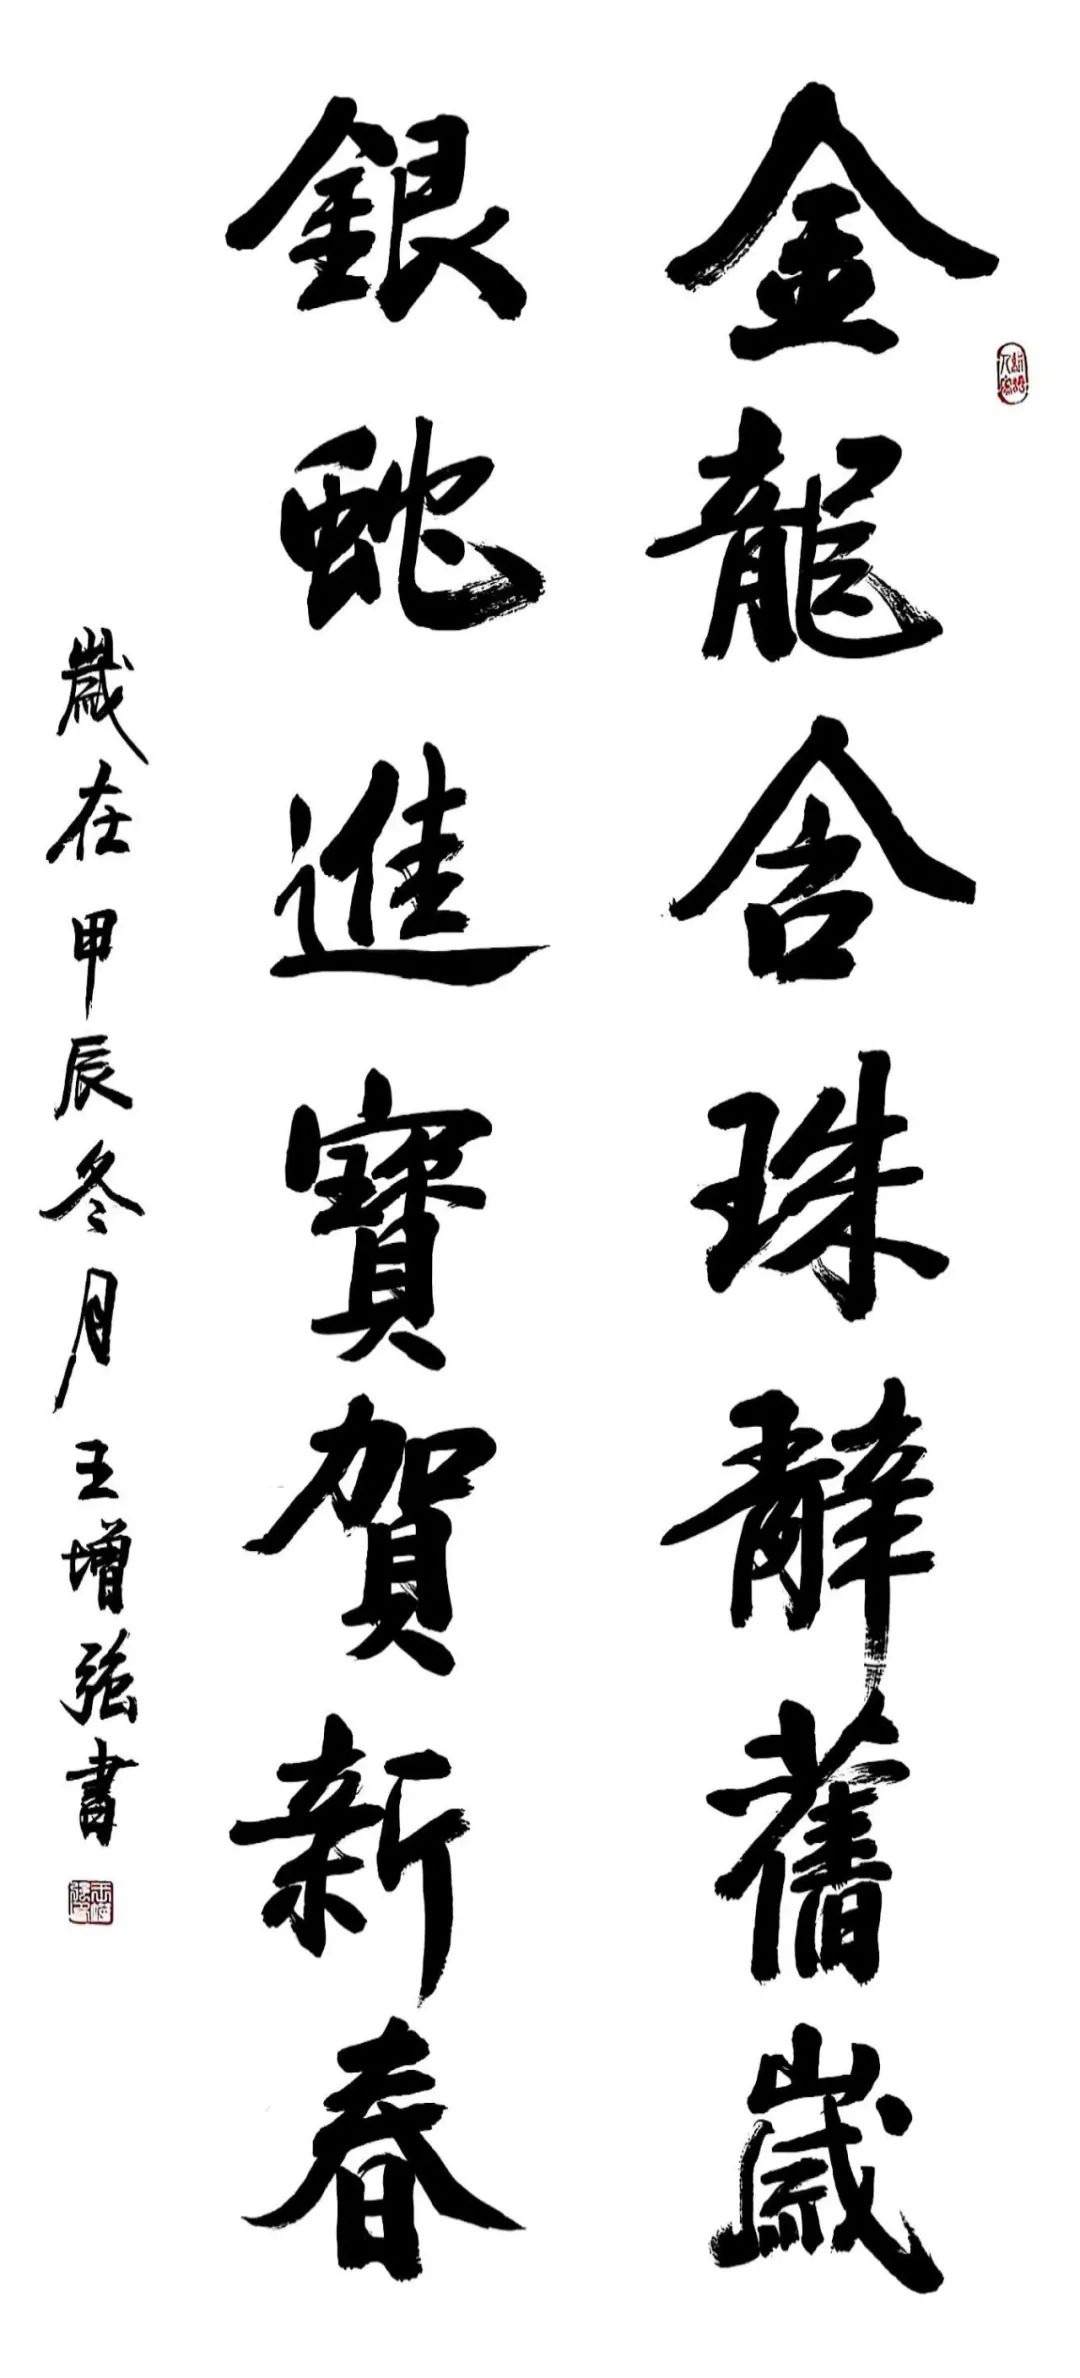 金龍含珠辭舊歲
銀蛇進寶賀新春
歲在甲辰冬月王增強書